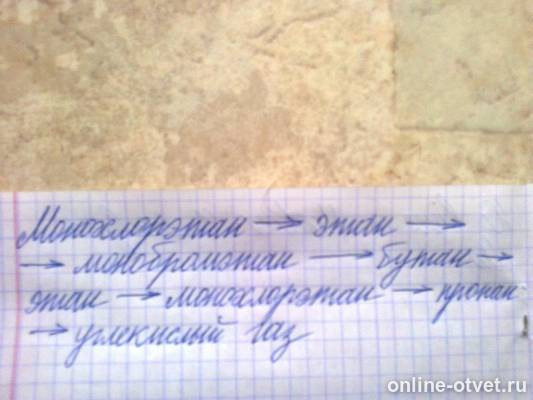 Монохлорэтан → этан →
→ монобромэтан → бутан →
этан → монохлорэтан → пропан
→ углекислый газ
online-otvet.ru